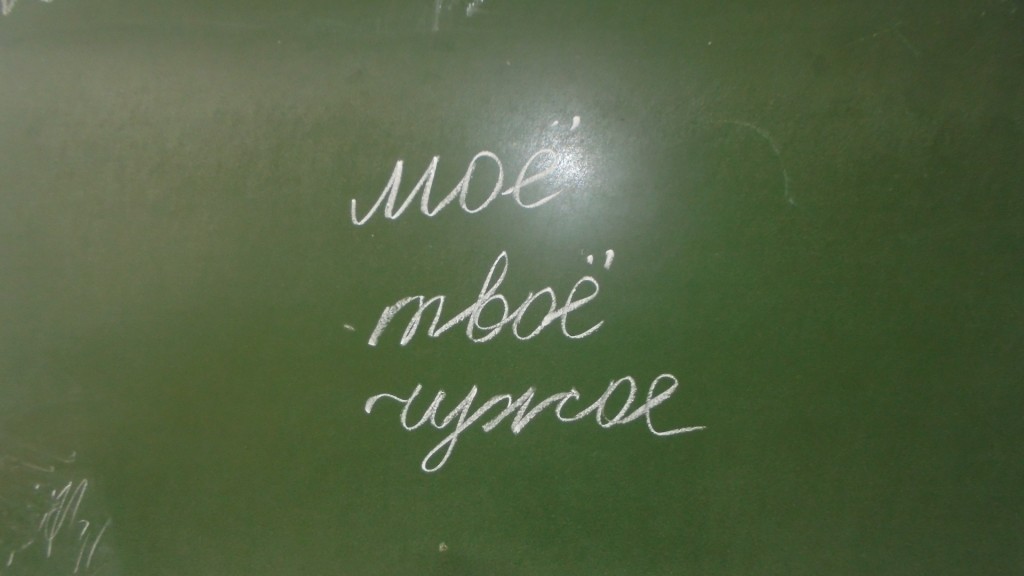 моё
твоё
чужое